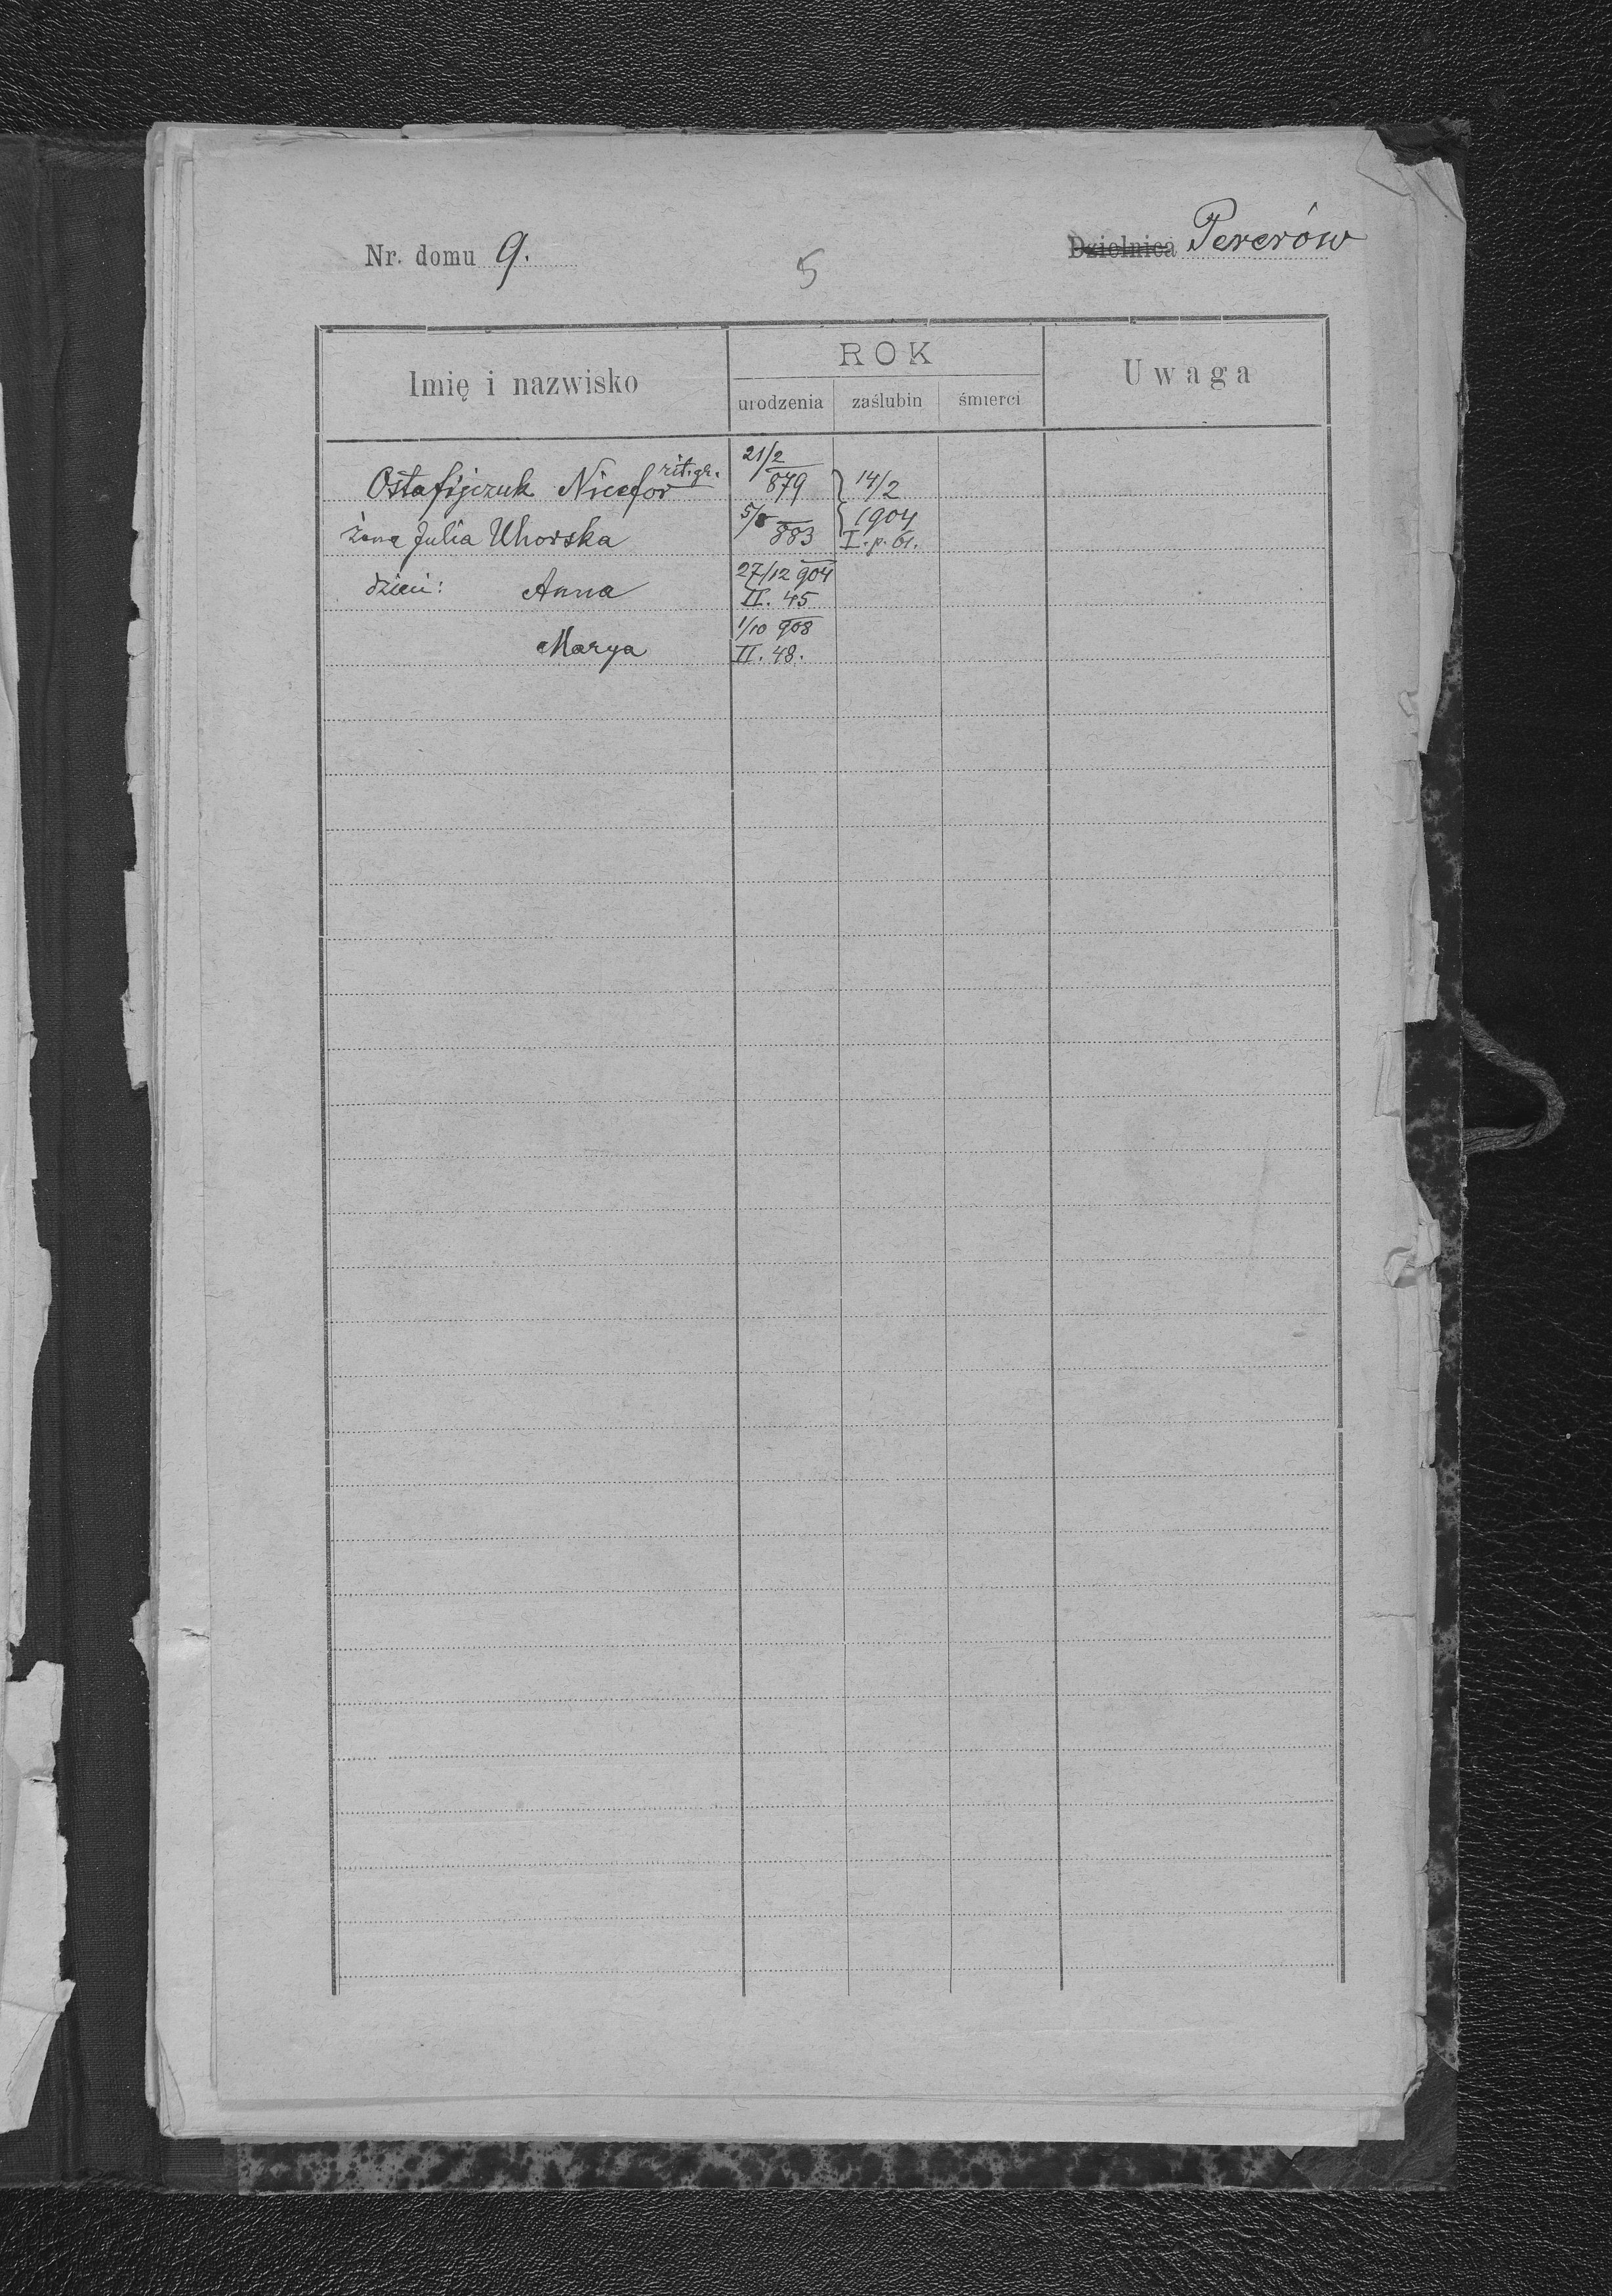 Nr. domu 9.
5
Dzielnica Pererów
Imię i nazwisko
ROK
Uwaga
urodzenia zaślubin śmierci
Ostafijczuk Nicefor rit. gr. 21/2 879 14/2
żona Julia Uhorska 5/8 883 1904 I. p. 61.
dzieci: Anna 27/12 904
II. 45
Marya 1/10 908
II. 48.